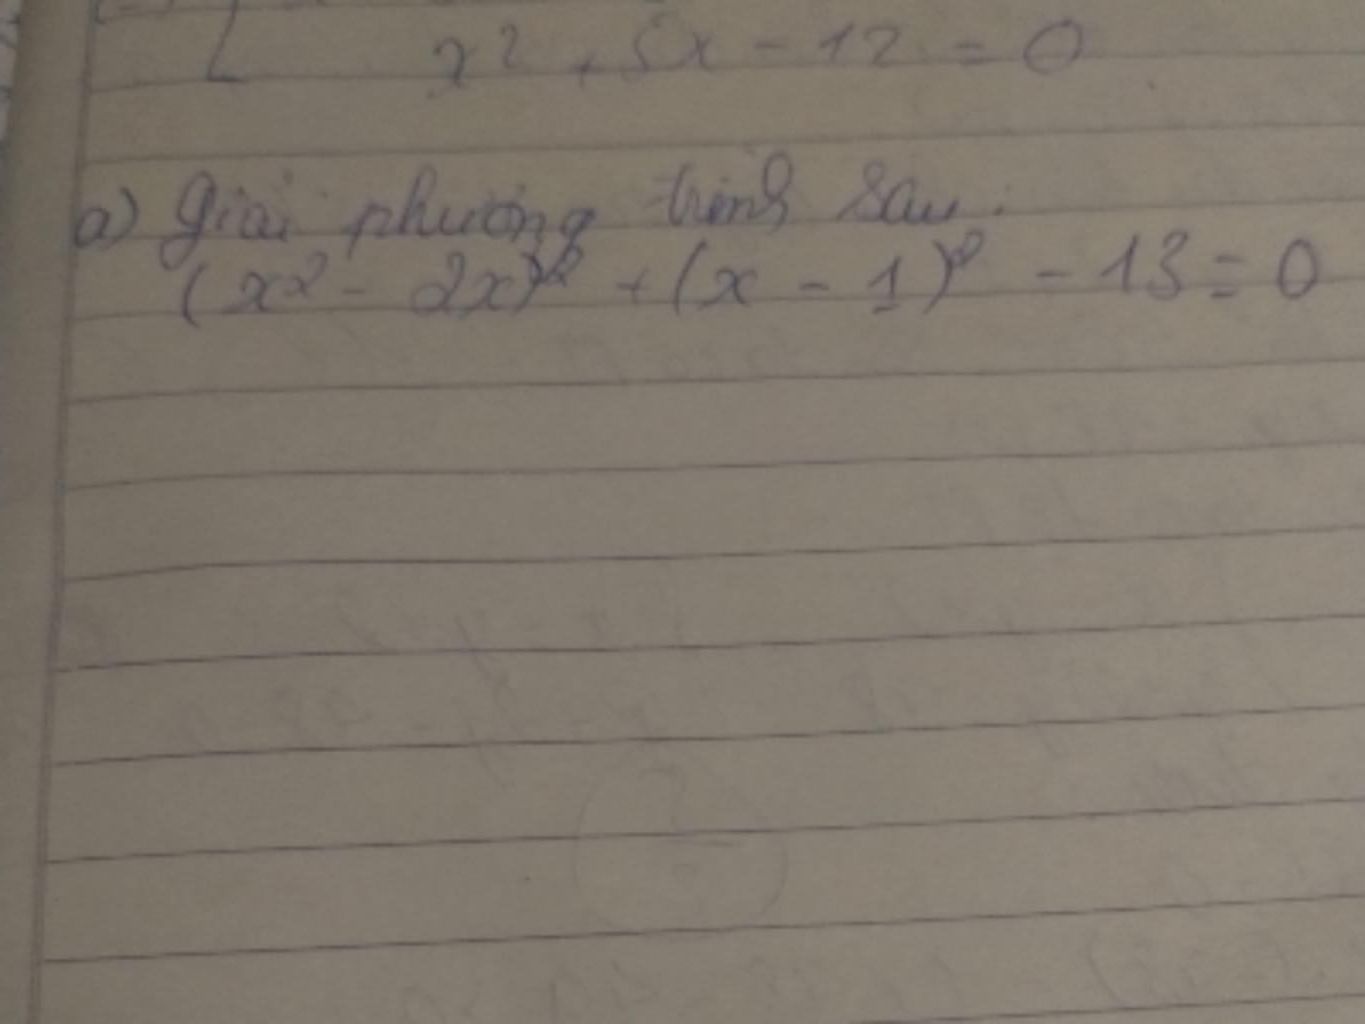 x² + 5x - 12 = 0
a) Giải phương trình sau:
(x² - 2x)² + (x - 1)² - 13 = 0